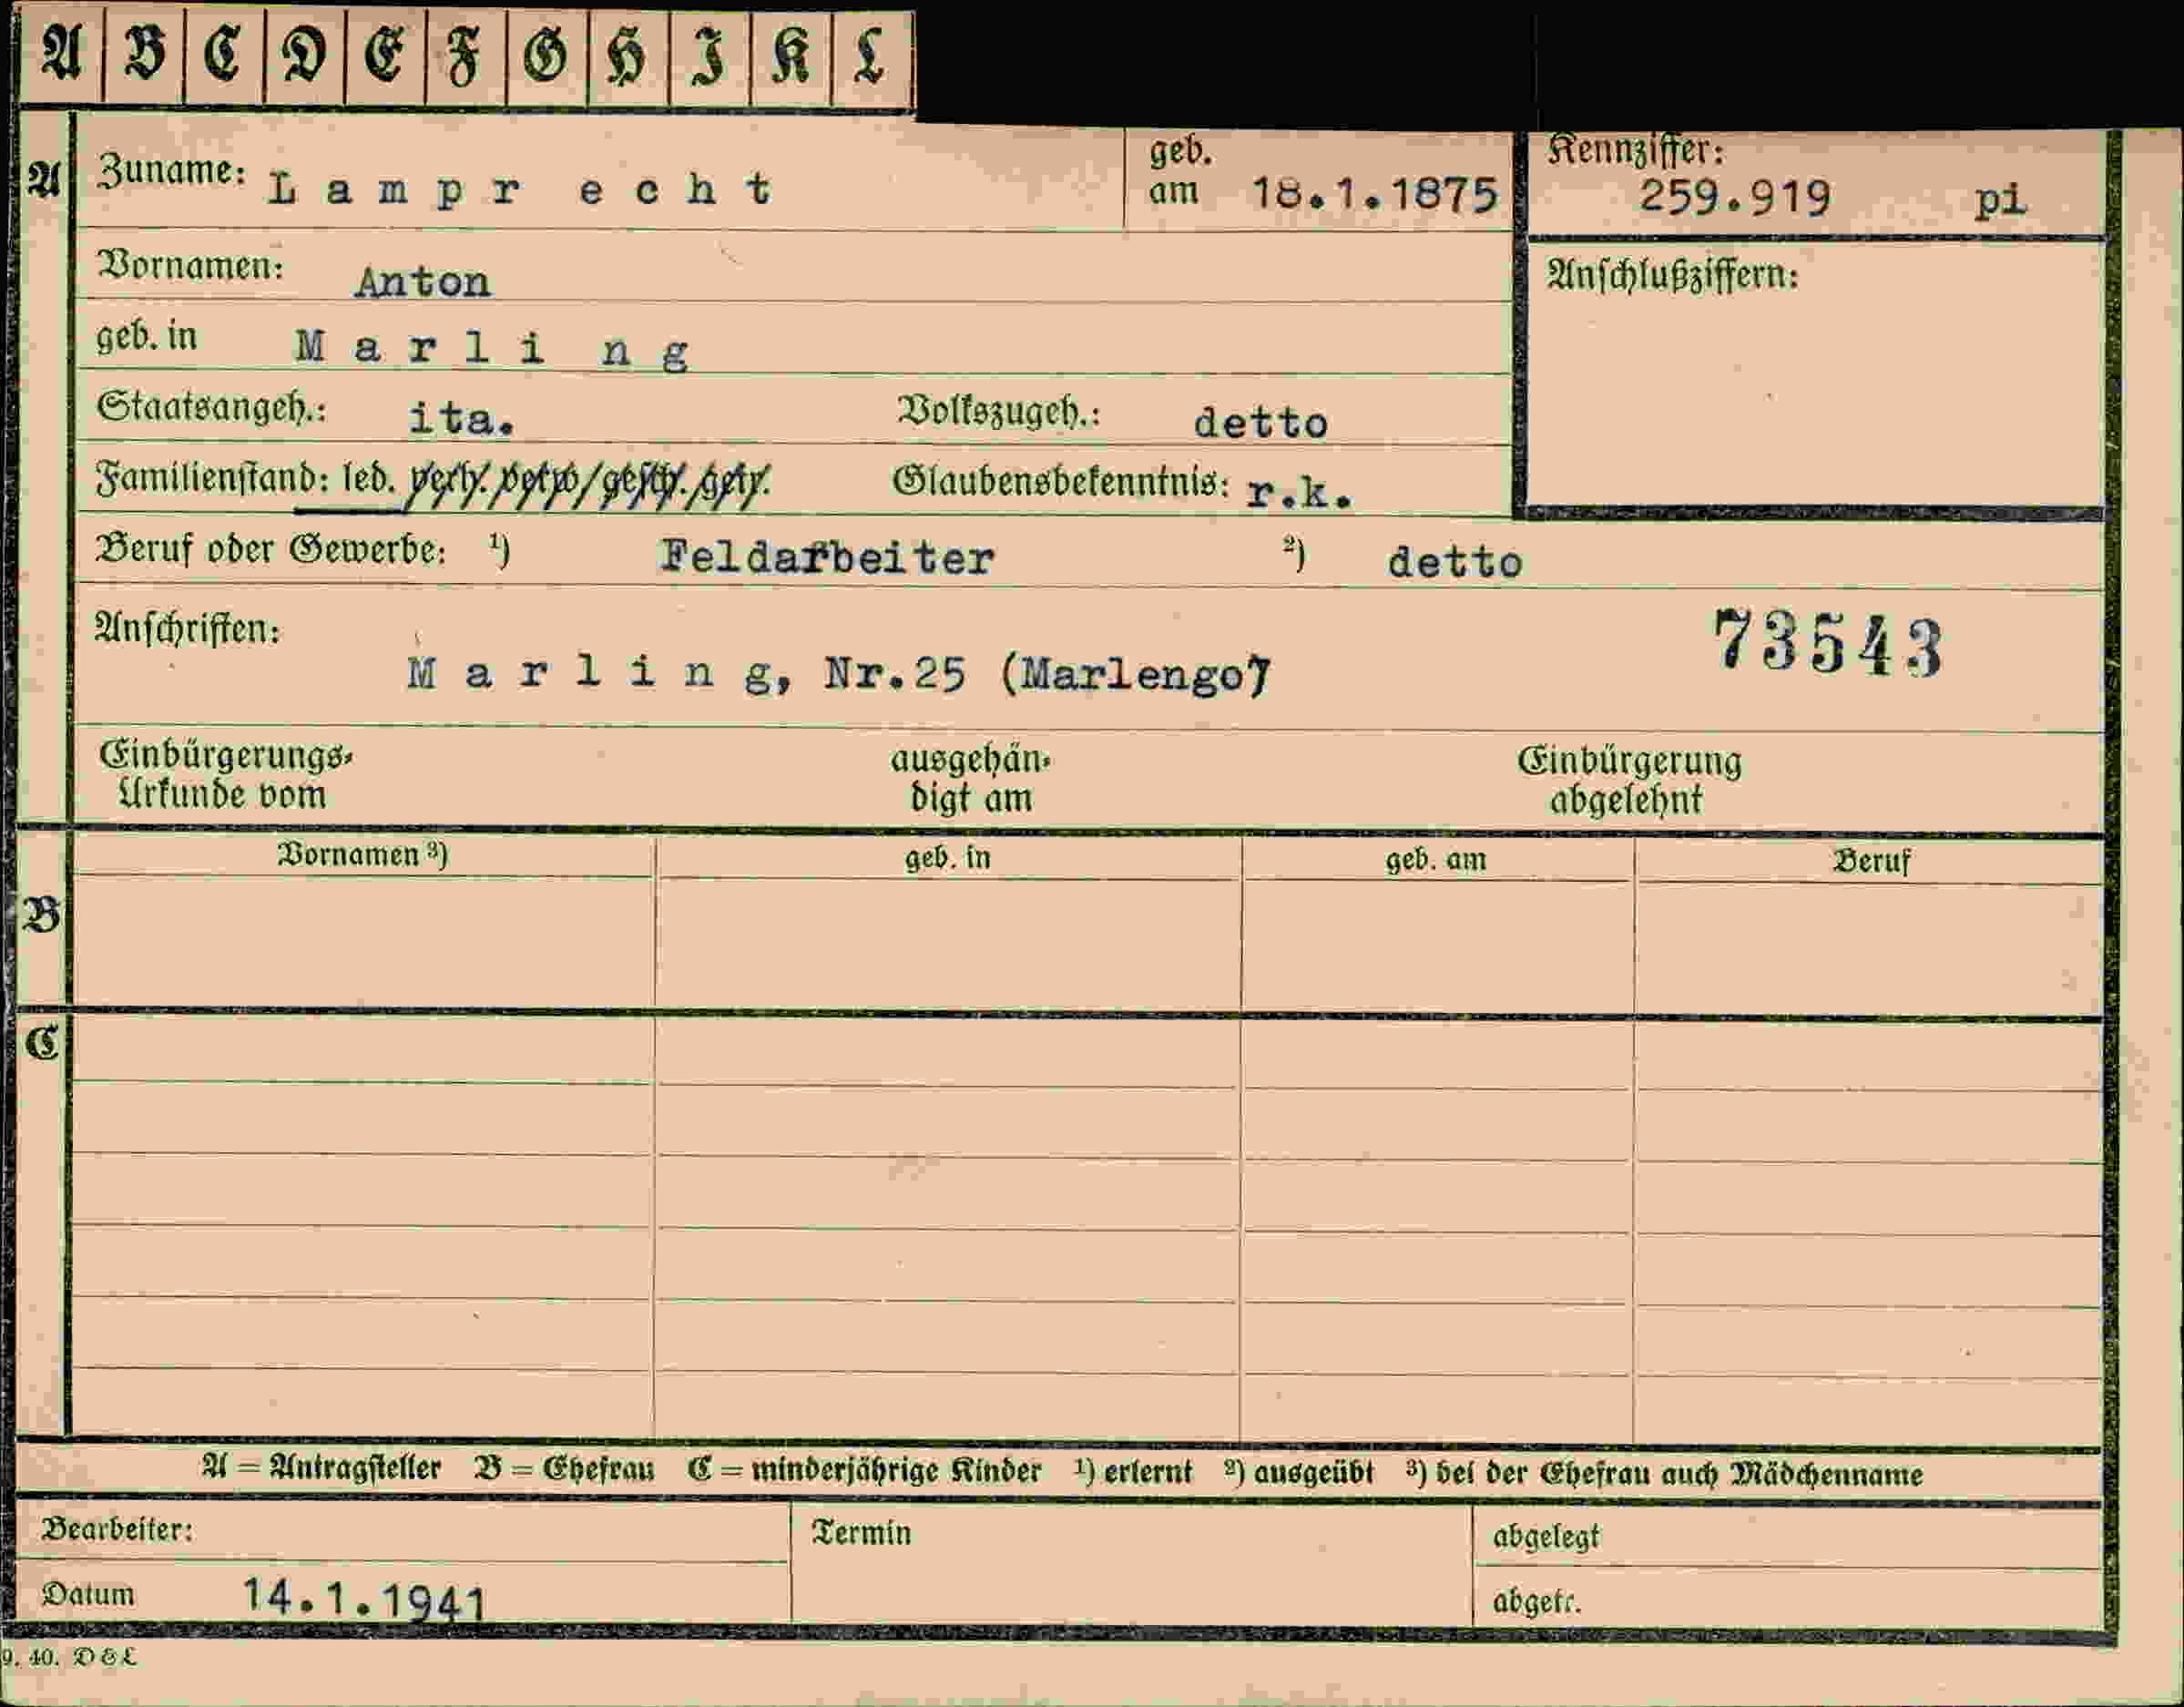 A B C D E F G H I K L
A Zuname: L a m p r e c h t geb. am 18.1.1875 Kennziffer: 259.919 pi
Vornamen: Anton Anschlußziffern:
geb. in M a r l i n g
Staatsangeh.: ita. Volkszugeh.: detto
Familienstand: led. verh. verw/gesch. getr. Glaubensbekenntnis: r.k.
Beruf oder Gewerbe: ¹) Feldarbeiter ²) detto
Anschriften:
73543
M a r l i n g, Nr.25 (Marlengo)
Einbürgerungs-Urkunde vom ausgehän-digt am Einbürgerung abgelehnt
Vornamen ³) geb. in geb. am Beruf
B
C
A = Antragsteller B = Ehefrau C = minderjährige Kinder ¹) erlernt ²) ausgeübt ³) bei der Ehefrau auch Mädchenname
Bearbeiter: Termin abgelegt
Datum 14.1.1941 abgetr.
9. 40. D & L